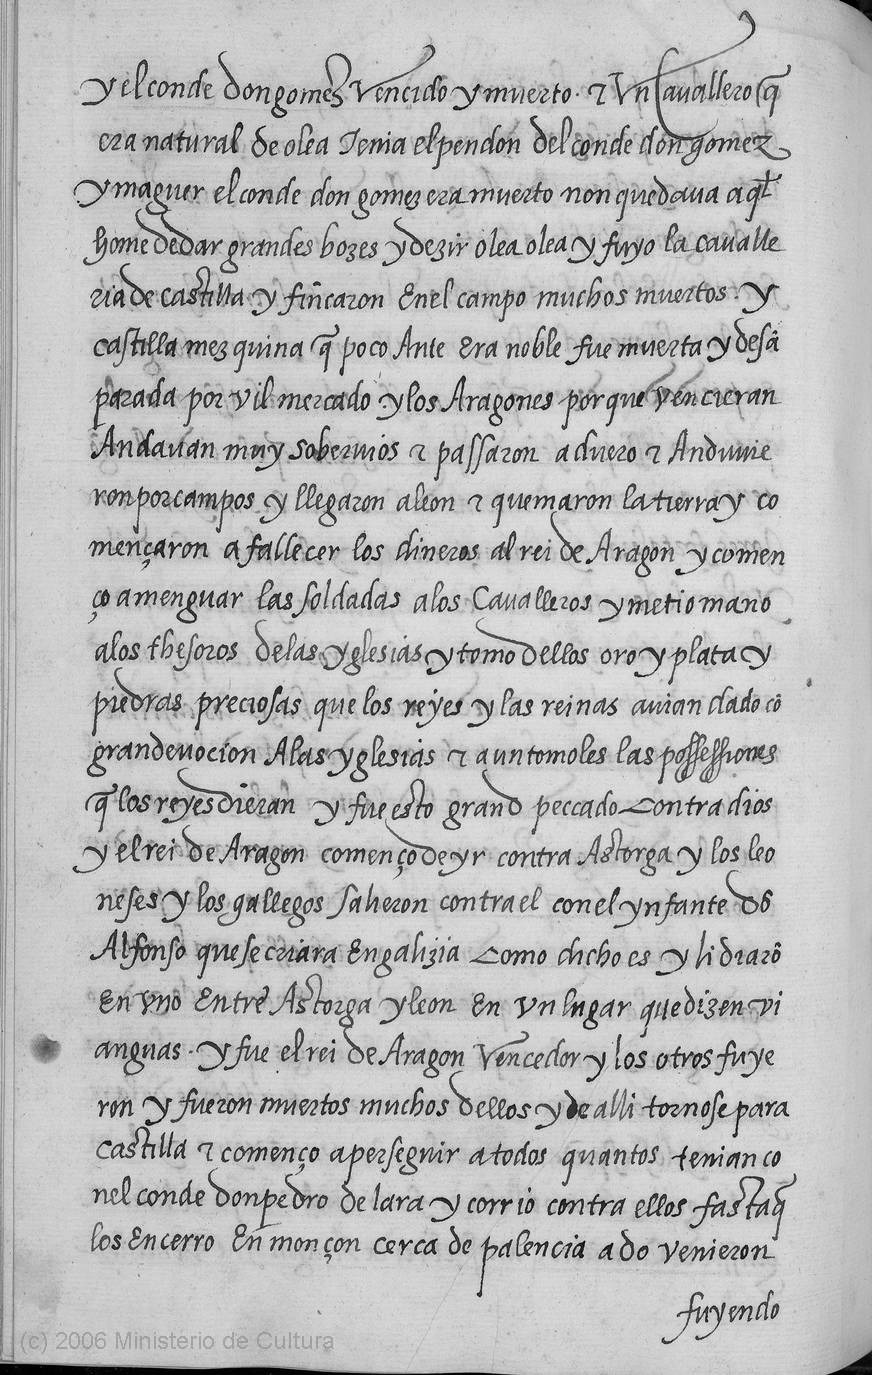 y el conde don gomez vencido y muerto · τ Vn Cauallero q̄
era natural de olea Tenia el pendon del conde don gomez
y maguer el conde don gomez era muerto non quedaua aq̄l
home de dar grandes bozes y dezir olea olea y fuyo la caualle
ria de castilla y fiñcaron En el campo muchos muertos · y
castilla mezquina q̄ poco Ante Era noble fue muerta y desã
parada por vil mercado · y los Aragones porque vencieran
Andauan muy soberuios τ passaron a duero τ Anduuie
ron por campos y llegaron a leon τ quemaron la tierra y co
mençaron a fallecer los dineros al rei de Aragon y comen
ço a menguar las soldadas a los Caualleros y metio mano
a los thesoros de las yglesias y tomo dellos oro y plata y
piedras preciosas que los reyes y las reinas auian dado cõ
gran deuocion A las yglesias τ aun tomoles las possessiones
q̄ los reyes dieran y fue esto grand peccado Contra dios
y el rei de Aragon començo de yr contra Astorga y los leo
neses y los gallegos salieron contra el con el ynfante dõ
Alfonso que se criara En galizia Como dicho es y lidiarõ
En vno Entre Astorga y leon En vn lugar que dizen vi
anguas · y fue el rei de Aragon Vencedor y los otros fuye
ron y fueron muertos muchos dellos y de alli tornose para
Castilla τ començo a perseguir a todos quantos tenian co
nel conde don pedro de lara y corrio contra ellos fasta q̄
los Encerro En monçon cerca de palencia a do venieron
fuyendo
(c) 2006 Ministerio de Cultura